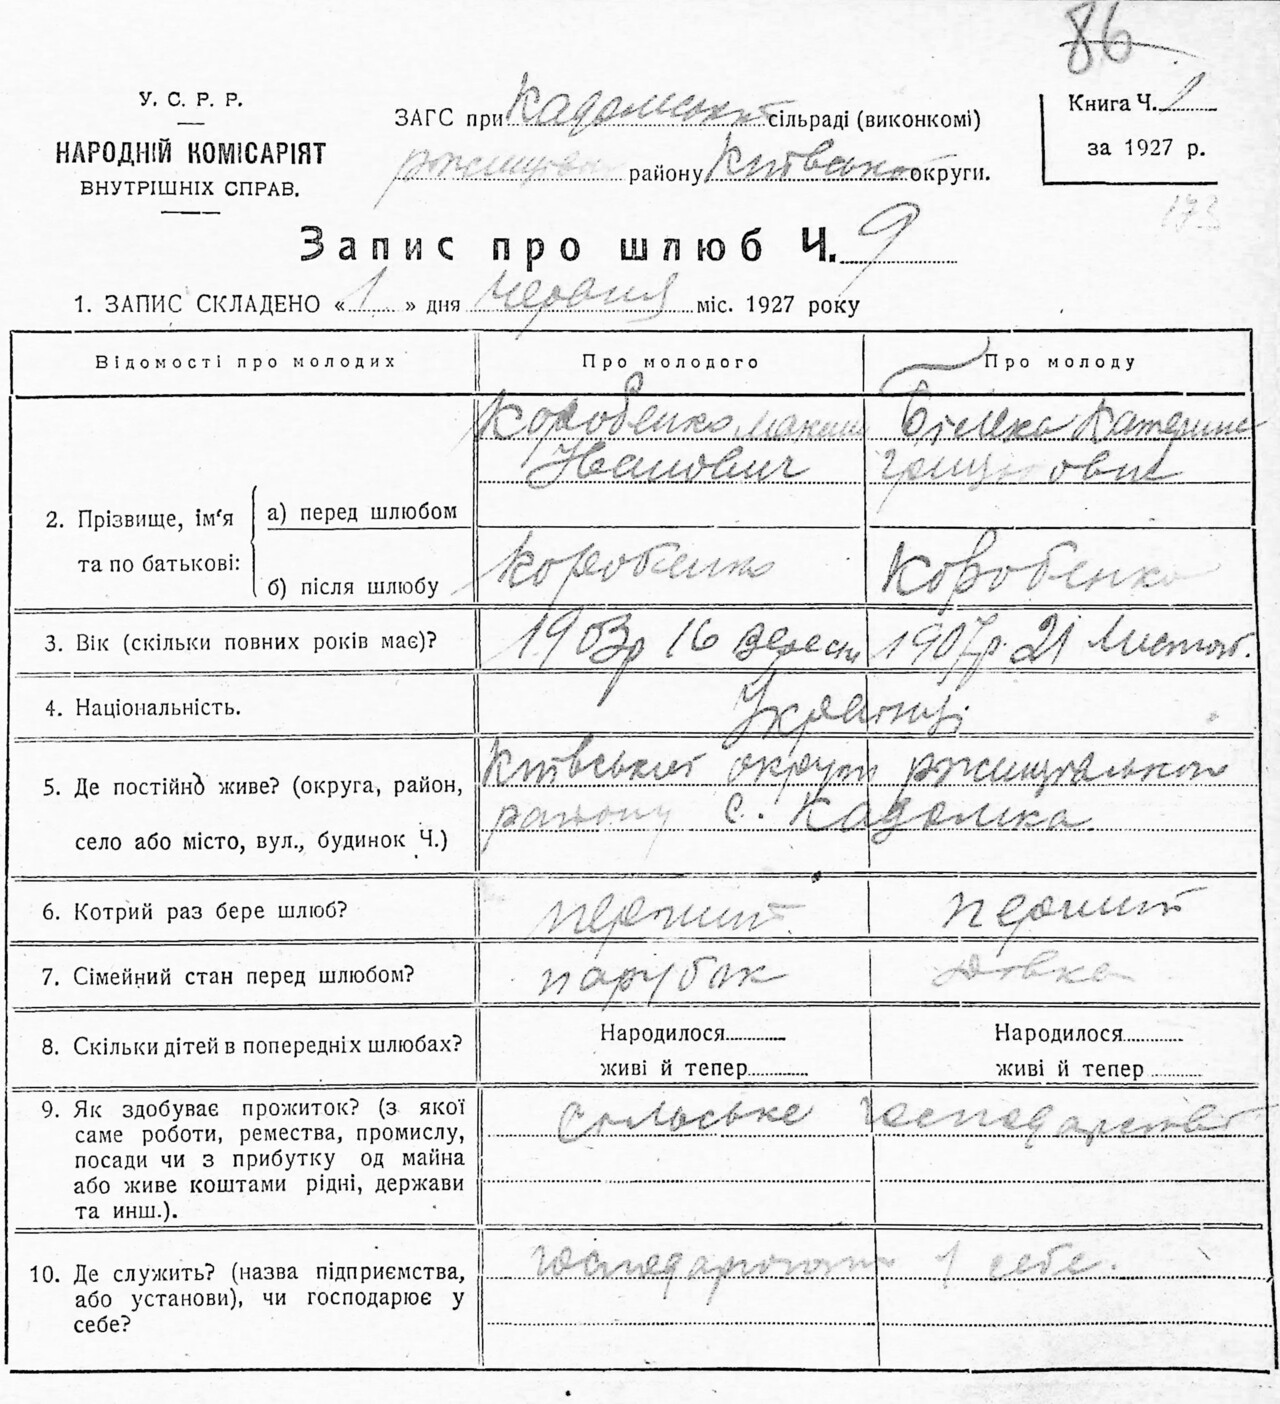 86
У. С. Р. Р.
НАРОДНІЙ КОМІСАРІЯТ
ВНУТРІШНІХ СПРАВ.
ЗАГС при Кадомській сільраді (виконкомі)
району Київської округи.
Книга Ч. 1
за 1927 р.
173
Запис про шлюб Ч. 9
1. ЗАПИС СКЛАДЕНО « 1 » дня червня міс. 1927 року
Відомості про молодих
Про молодого
Про молоду
2. Прізвище, ім'я та по батькові:
а) перед шлюбом
Коробенко Максим
Иванович
Білека Катерина
б) після шлюбу
Коробенко
Коробенко
3. Вік (скільки повних років має)?
1903р 16 Вересн
1907р. 21 Листоп.
4. Національність.
Українці
5. Де постійно живе? (округа, район,
село або місто, вул., будинок Ч.)
Київської округи ржищівського
району с. Кадомка
6. Котрий раз бере шлюб?
перший
перший
7. Сімейний стан перед шлюбом?
парубок
дівка
8. Скільки дітей в попередніх шлюбах?
Народилося
живі й тепер
Народилося
живі й тепер
9. Як здобуває прожиток? (з якої
саме роботи, ремества, промислу,
посади чи з прибутку од майна
або живе коштами рідні, держави
та инш.).
Сільське господарство
10. Де служить? (назва підприємства,
або установи), чи господарює у
себе?
у себе.